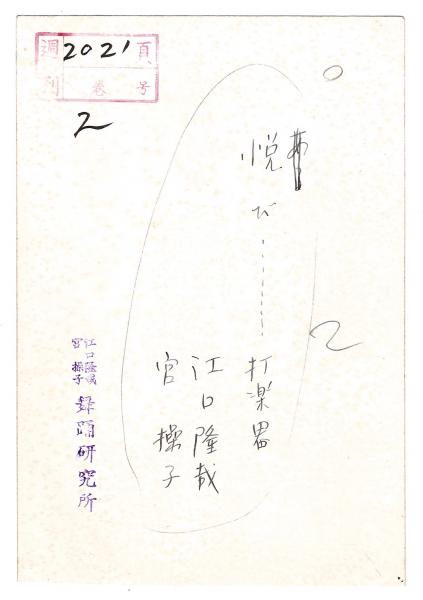 週刊 2021 頁
巻 号
2
悦び………打楽器
江口隆哉
宮 操子
2
江口隆哉
宮 操子
舞踊研究所